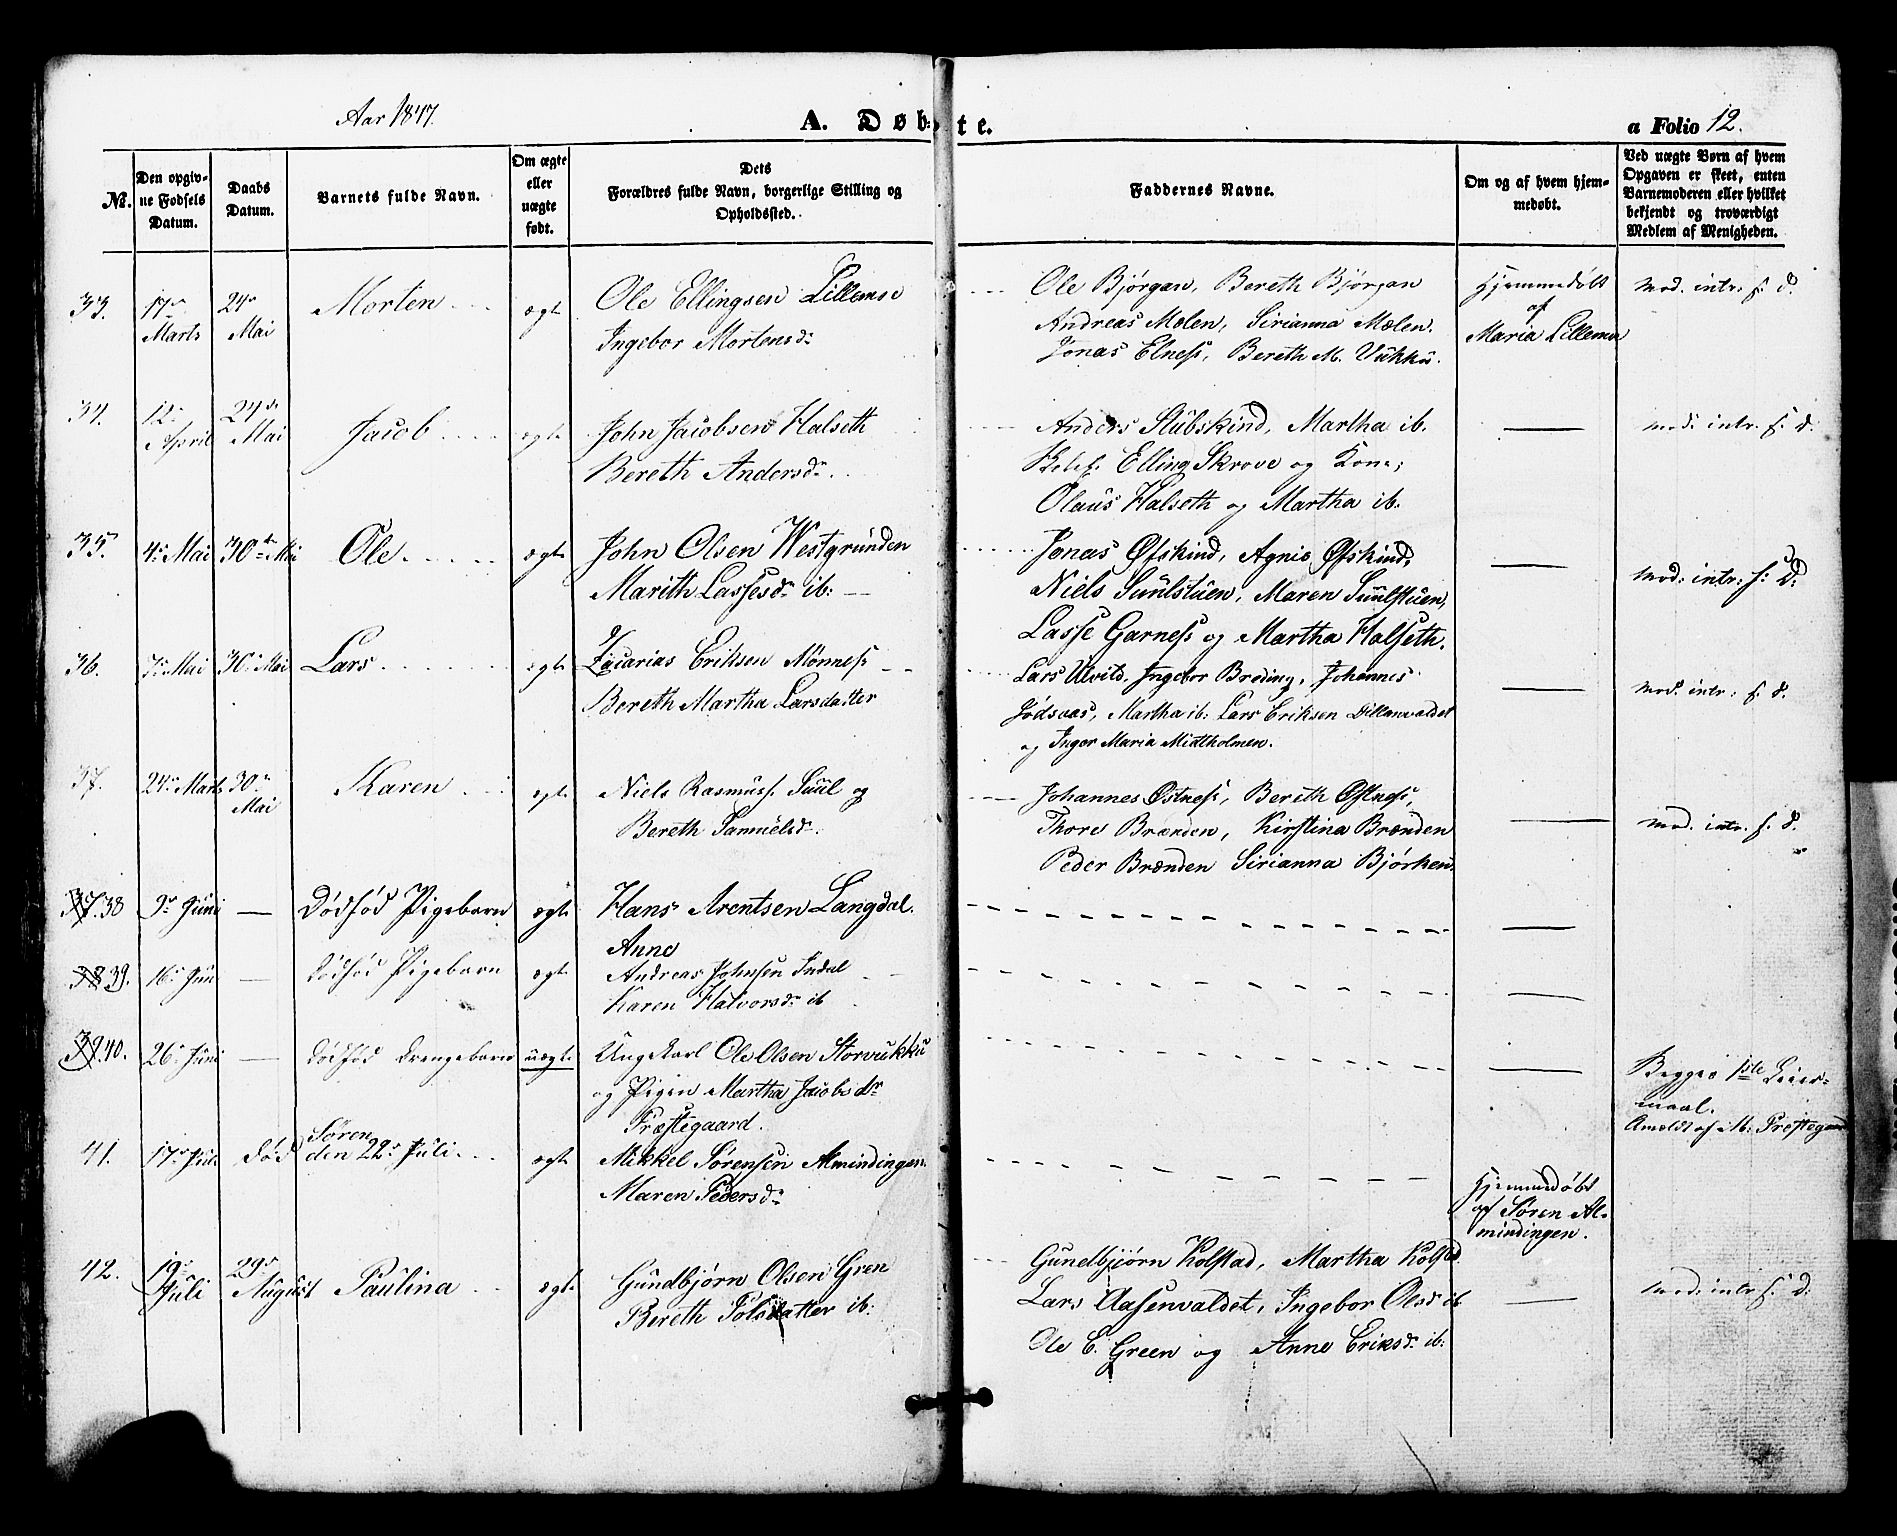 Aar 1847.
A. Døbte.
a Folio 12.
No.
Den opgivne Fødsels Datum.
Daabs Datum.
Barnets fulde Navn.
Om ægte eller uægte født.
Dets Forældres fulde Navn, borgerlige Stilling og Opholdssted.
Faddernes Navne.
Om og af hvem hjemmedøbt.
Ved uægte Børn af hvem Opgaven er skeet, enten Barnemoderen eller hvilket bekjendt og troværdigt Medlem af Menigheden.
33. 17de Marts 24de Mai Morten ægte
Ole Ellingsen Lillemoe
Ingebor Mortensdr
Ole Bjørgan, Bereth Bjørgan
Andreas Molen, Sirianna Molen.
Jonas Elness, Bereth M. Vukku.
Hjemmedøbt
af
Maria Lillemoe
Mod. intr. f. d.
34. 12te April 24de Mai Jacob ægte
John Jacobsen Halseth
Bereth Andersdr
Anders Stubskind, Martha ib.
Elling Skrove og Kone;
Olaus Halseth og Martha ib.
mod: intr. f. d.
35. 4de Mai 30te Mai Ole ægte
John Olsen Westgrunden
Marith Lassesdr ib:
Jonas Øfskind, Agnis Øfskind,
Niels Suulstuen, Maren Suulstuen,
Lasse Garness og Martha Halseth.
Mod: intr: f: D:
36. 7de Mai 30te Mai Lars ægte
Zacarias Eriksen Mønness
Bereth Martha Larsdatter
Lars Ulvild, Ingebor Brøding, Johannes
Jødsaas, Martha ib: Lars Eriksen Dillanvaldet
og Inger Maria Midtholmen.
Mod. intr: f. d.
37. 24de Marts 30te Mai Karen ægt.
Niels Rasmuss. Suul og
Bereth Samuelsdr.
Johannes Østness, Bereth Østness,
Thore Brænden, Kirstina Brænden
Peder Brænden Sirianna Bjørken.
Mod. intr. f. d.
37. 38 9de Juni — Dødfød Pigebarn ægte
Hans Arentsen Langdal.
Anne
38 39. 16de Juni — Dødfød Pigebarn ægt.
Andreas Johnsen Indal
Karen Halvorsdr ib
39. 40. 26de Juni — Dødfød Drengebarn uægte
Ungekarl Ole Olsen Storvukku
og Pigen Martha Jacobsdr
Præstegaard.
Begges 1ste Leiermaal.
Anmeldt af M: Prestegaard
41. 17de Juli død Søren
den 22de Juli ægte
Mikkel Sørensen Almindingen
Maren Pedersdr
Hjemmedøbt
af Søren Almindingen.
42. 19de Juli 29de August Paulina ægte
Gundbjørn Olsen Gren
Bereth Polsdatter ib:
Gundbjørn Kolstad, Martha Kolstad
Lars Aasenvaldet, Ingebor Olsd ib
Ole E. Green og Anne Eriksdr ib:
Mod: intr f: d: